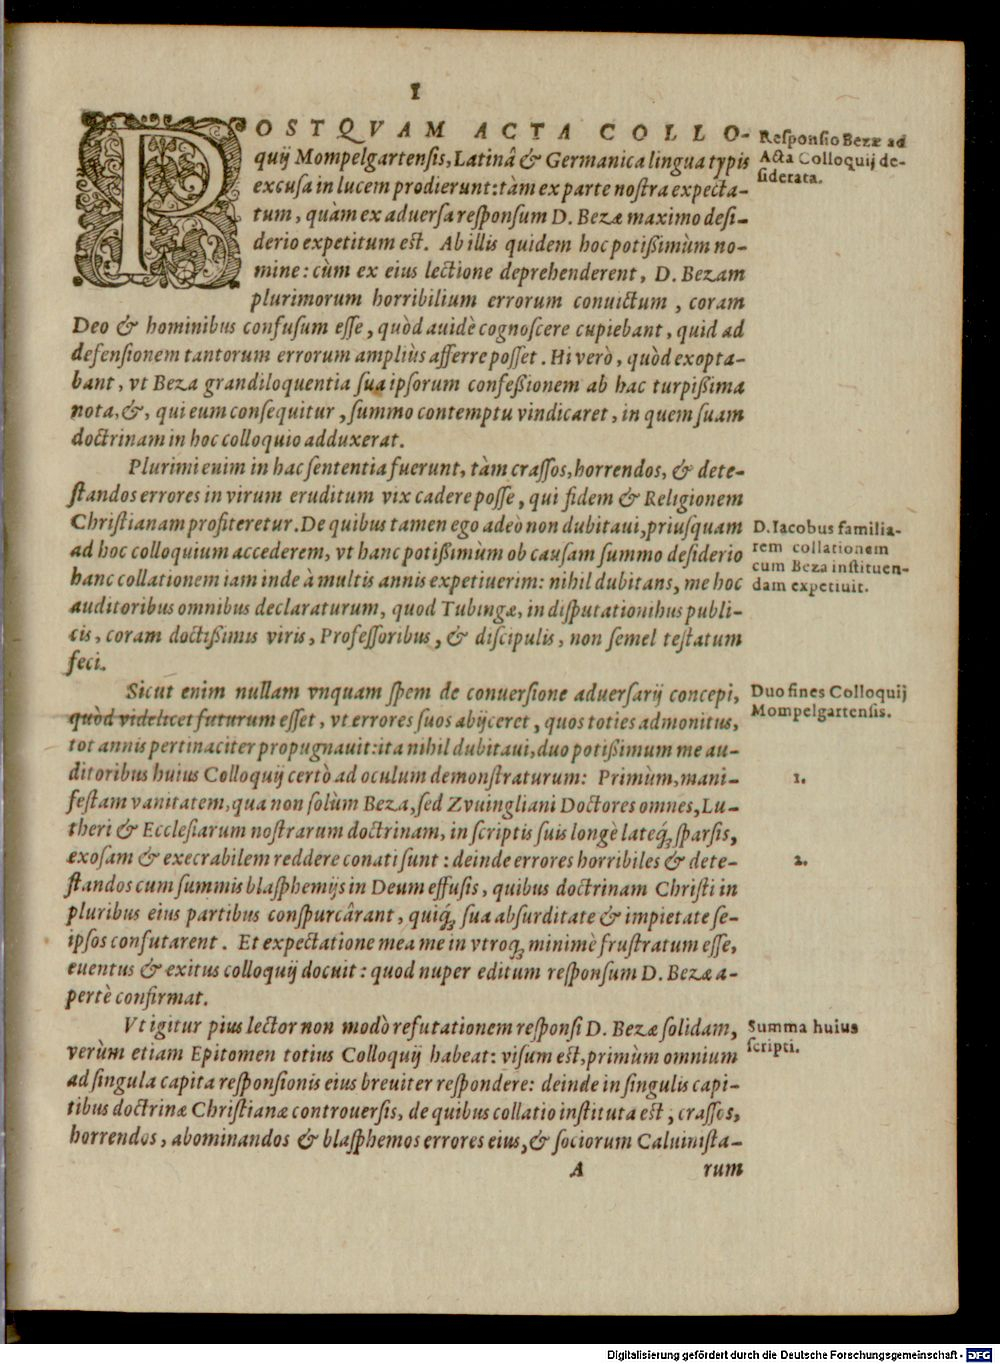 1
POSTQVAM ACTA COLLO-
quij Mompelgartensis, Latinâ & Germanica lingua typis
excusa in lucem prodierunt: tàm ex parte nostra expecta-
tum, quàm ex aduersa responsum D. Bezæ maximo desi-
derio expetitum est. Ab illis quidem hoc potißimùm no-
mine: cùm ex eius lectione deprehenderent, D. Bezam
plurimorum horribilium errorum conuictum, coram
Deo & hominibus confusum esse, quòd auidè cognoscere cupiebant, quid ad
defensionem tantorum errorum ampliùs afferre posset. Hi verò, quòd exopta-
bant, vt Beza grandiloquentia sua ipsorum confeßionem ab hac turpißima
nota, &, qui eum consequitur, summo contemptu vindicaret, in quem suam
doctrinam in hoc colloquio adduxerat.
Responsio Bezæ ad
Acta Colloquij de-
siderata.
Plurimi enim in hac sententia fuerunt, tàm crassos, horrendos, & dete-
standos errores in virum eruditum vix cadere posse, qui fidem & Religionem
Christianam profiteretur. De quibus tamen ego adeò non dubitaui, priusquam
ad hoc colloquium accederem, vt hanc potißimùm ob causam summo desiderio
hanc collationem iam inde à multis annis expetiuerim: nihil dubitans, me hoc
auditoribus omnibus declaraturum, quod Tubingæ, in disputationibus publi-
cis, coram doctißimis viris, Professoribus, & discipulis, non semel testatum
feci.
D. Iacobus familia-
rem collationem
cum Beza instituen-
dam expetiuit.
Sicut enim nullam vnquam spem de conuersione aduersarij concepi,
quòd videlicet futurum esset, vt errores suos abijceret, quos toties admonitus,
tot annis pertinaciter propugnauit: ita nihil dubitaui, duo potißimum me au-
ditoribus huius Colloquij certò ad oculum demonstraturum: Primùm, mani-
festam vanitatem, qua non solùm Beza, sed Zvuingliani Doctores omnes, Lu-
theri & Ecclesiarum nostrarum doctrinam, in scriptis suis longè lateq́ꝫ sparsis,
exosam & execrabilem reddere conati sunt: deinde errores horribiles & dete-
standos cum summis blasphemijs in Deum effusis, quibus doctrinam Christi in
pluribus eius partibus conspurcârant, quiq́ꝫ sua absurditate & impietate se-
ipsos confutarent. Et expectatione mea me in vtroqꝫ minimè frustratum esse,
euentus & exitus colloquij docuit: quod nuper editum responsum D. Bezæ a-
pertè confirmat.
Duo fines Colloquij
Mompelgartensis.
1.
2.
Vt igitur pius lector non modò refutationem responsi D. Bezæ solidam,
verùm etiam Epitomen totius Colloquij habeat: visum est, primùm omnium
ad singula capita responsionis eius breuiter respondere: deinde in singulis capi-
tibus doctrinæ Christianæ controuersis, de quibus collatio instituta est, crassos,
horrendos, abominandos & blasphemos errores eius, & sociorum Caluinista-
Summa huius
scripti.
A rum
Digitalisierung gefördert durch die Deutsche Forschungsgemeinschaft - DFG